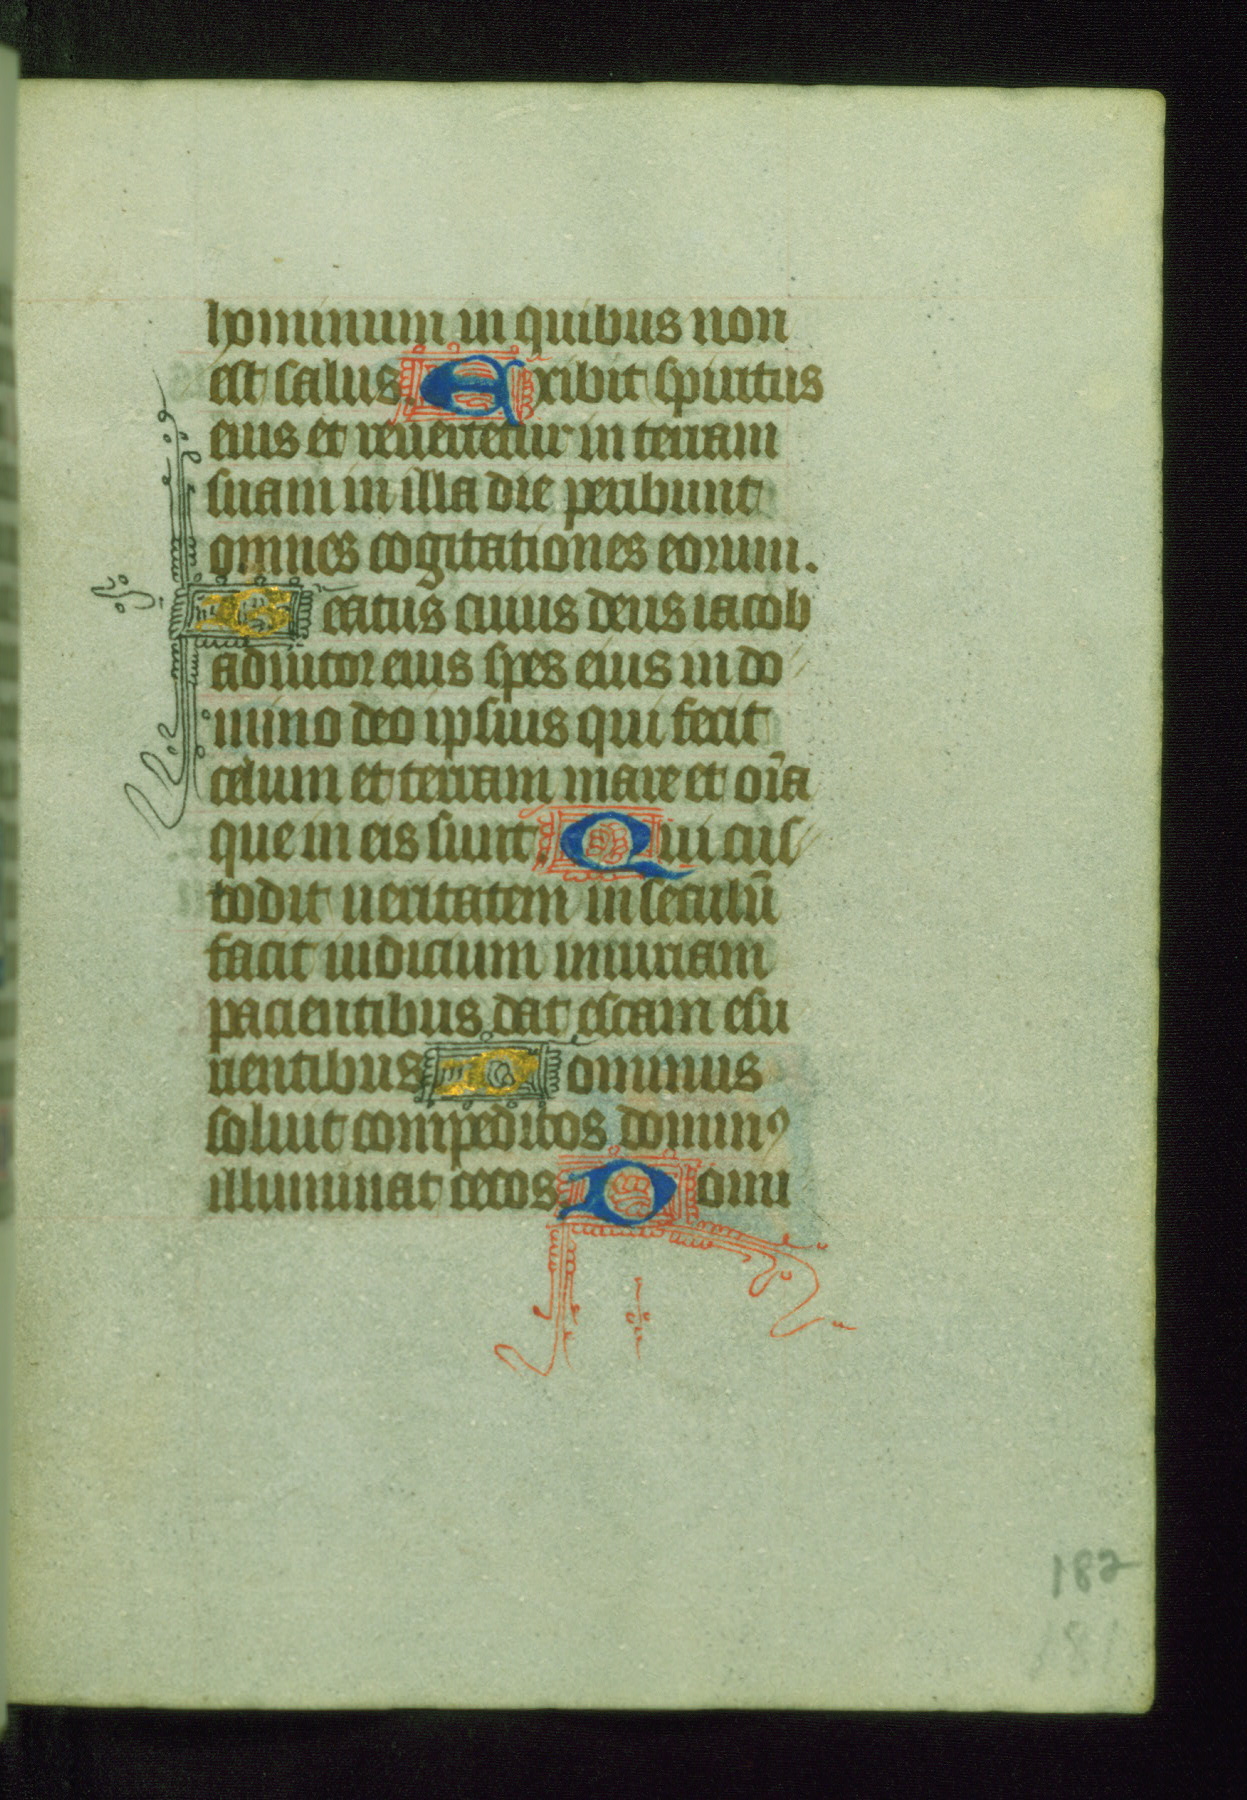 hominum in quibus non
est salus. Exibit spiritus
eius et reuertetur in terram
suam in illa die peribunt
omnes cogitationes eorum.
Beatus cuius deus iacob
adiutor eius spes eius in do
mino deo ipsius qui fecit
celum et terram mare et oīa
que in eis sunt. Qui cus
todit ueritatem in seculū
facit iudicium iniuriam
pacientibus dat escam esu
rientibus Dominus
soluit compeditos dominꝰ
illuminat cecos. Domi
182
181